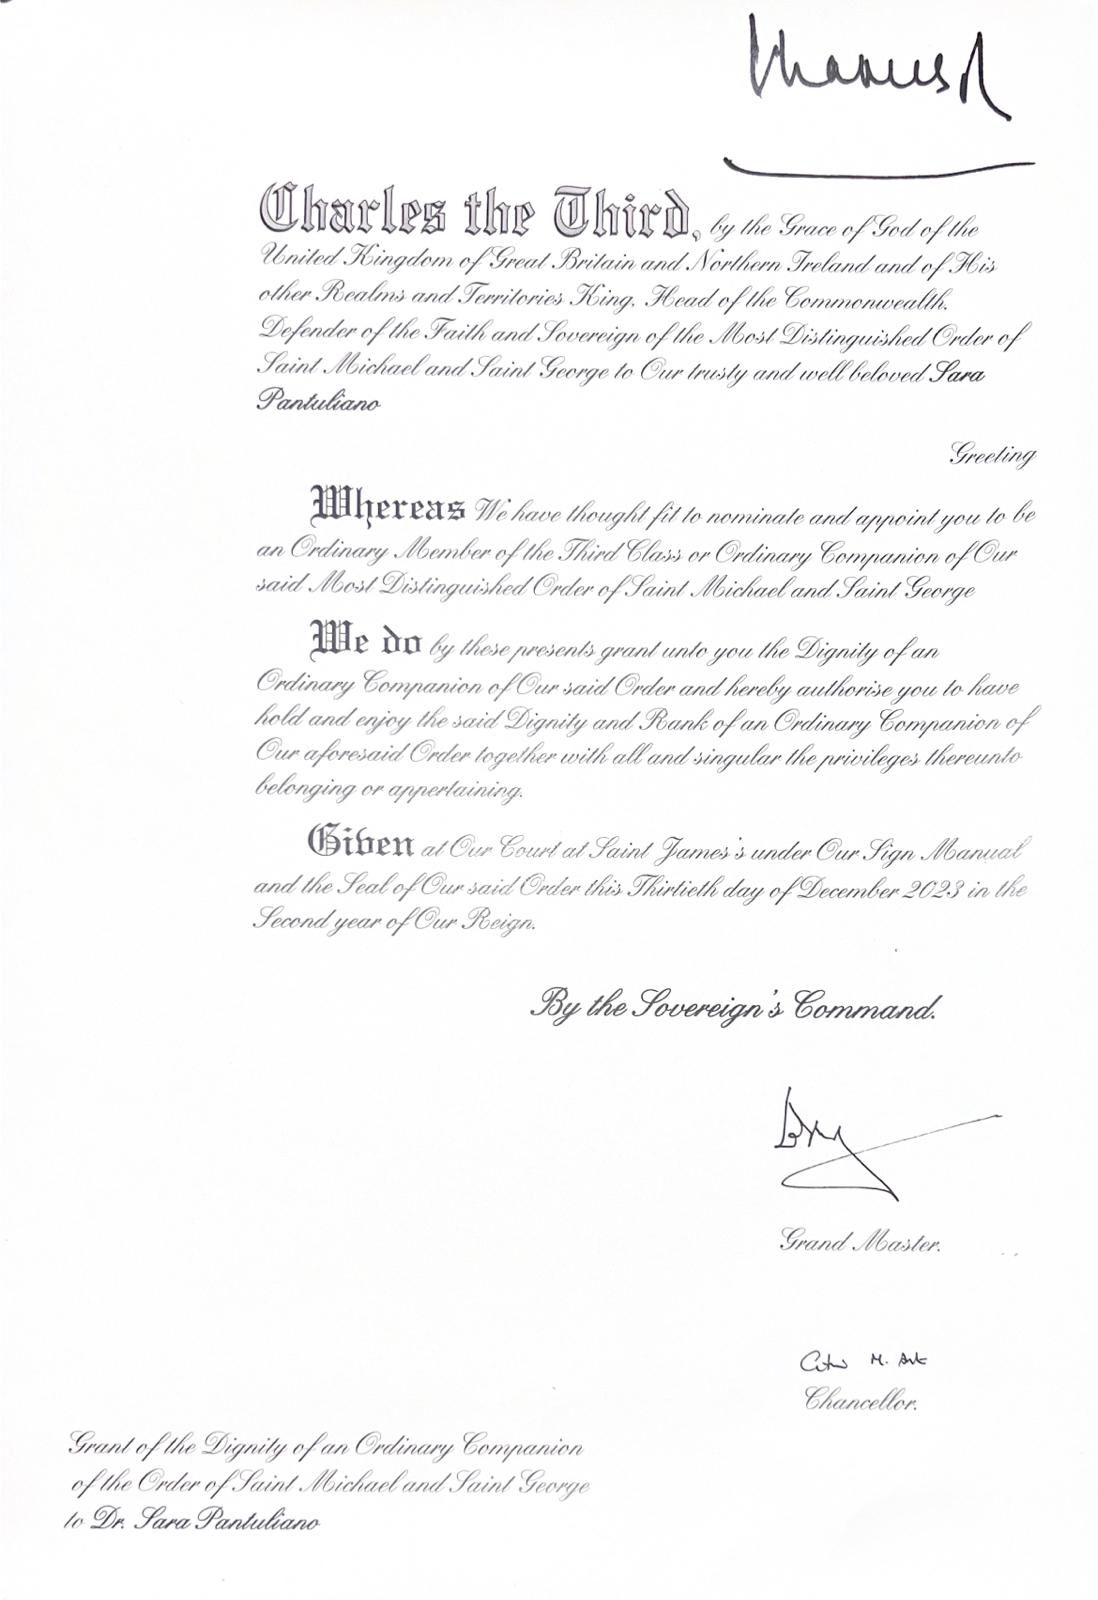 Charles R
Charles the Third, by the Grace of God of the
United Kingdom of Great Britain and Northern Ireland and of His
other Realms and Territories King, Head of the Commonwealth,
Defender of the Faith and Sovereign of the Most Distinguished Order of
Saint Michael and Saint George to Our trusty and well beloved Sara
Pantuliano
Greeting
Whereas We have thought fit to nominate and appoint you to be
an Ordinary Member of the Third Class or Ordinary Companion of Our
said Most Distinguished Order of Saint Michael and Saint George
We do by these presents grant unto you the Dignity of an
Ordinary Companion of Our said Order and hereby authorise you to have
hold and enjoy the said Dignity and Rank of an Ordinary Companion of
Our aforesaid Order together with all and singular the privileges thereunto
belonging or appertaining.
Given at Our Court at Saint James's under Our Sign Manual
and the Seal of Our said Order this Thirtieth day of December 2023 in the
Second year of Our Reign.
By the Sovereign's Command.
Grand Master.
Chancellor.
Grant of the Dignity of an Ordinary Companion
of the Order of Saint Michael and Saint George
to Dr. Sara Pantuliano